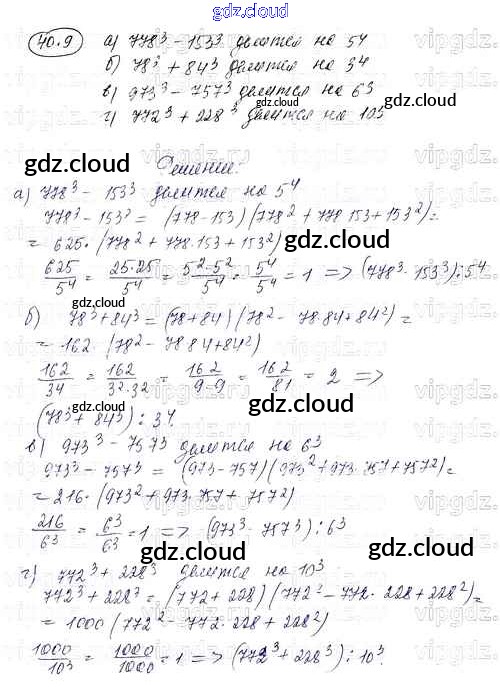 gdz.cloud
40.9 а) 778³ - 153³ делится на 5⁴
б) 78³ + 84³ делится на 3⁴
в) 973³ - 757³ делится на 6³
г) 772³ + 228³ делится на 10³
gdz.cloud gdz.cloud
Решение:
а) 778³ - 153³ делится на 5⁴
778³ - 153³ = (778-153)(778² + 778·153 + 153²) =
= 625·(778² + 778·153 + 153²)
gdz.cloud
625/5⁴ = 25·25/5⁴ = 5²·5²/5⁴ = 5⁴/5⁴ = 1 => (778³ - 153³) ⋮ 5⁴
б) 78³ + 84³ = (78+84)(78² - 78·84 + 84²) =
= 162·(78² - 78·84 + 84²)
162/34 = 162/32·32 = 162/9-9 = 162/81 = 2 =>
gdz.cloud gdz.cloud
(78³ + 84³) ⋮ 34.
в) 973³ - 757³ делится на 6³
973³ - 757³ = (973-757)(973² + 973·757 + 757²) =
= 216·(973² + 973·757 + 757²)
216/6³ = 6³/6³ = 1 => (973³ - 757³) ⋮ 6³
gdz.cloud
г) 772³ + 228³ делится на 10³
772³ + 228³ = (772 + 228)(772² - 772·228 + 228²) =
= 1000(772² - 772·228 + 228²)
1000/10³ = 1000/1000 = 1 => (772³ + 228³) ⋮ 10³.
gdz.cloud gdz.cloud